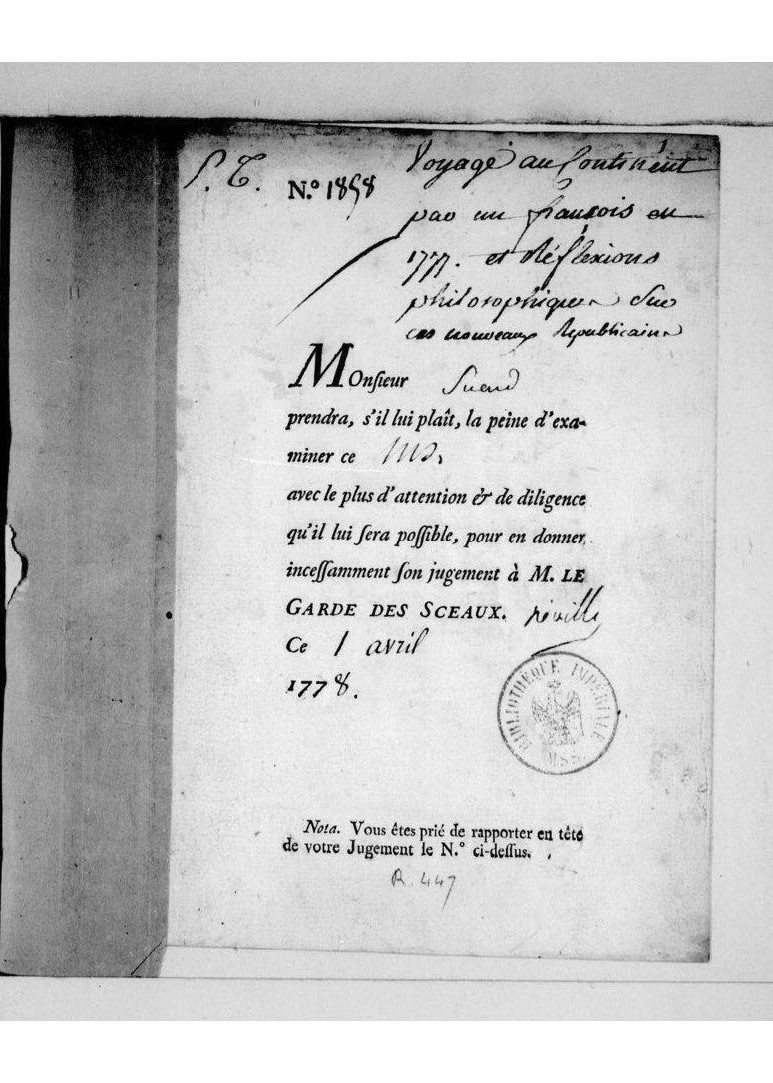 P. T.
N.º 1858
Voyage au Continent
par un françois en
1777. et Réflexions
philosophiques Sur
ces nouveaux Republicains
MOnſieur Suard
prendra, s'il lui plaît, la peine d'exa-
miner ce Ms,
avec le plus d'attention & de diligence
qu'il lui ſera poſſible, pour en donner
inceſſamment ſon jugement à M. LE
GARDE DES SCEAUX. néville
Ce 1 avril
1778.
BIBLIOTHÈQUE IMPÉRIALE
MSS.
Nota. Vous êtes prié de rapporter en tête
de votre Jugement le N.º ci-deſſus.
R. 447